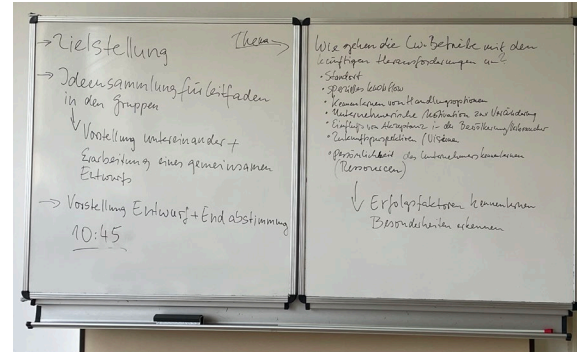 → Zielstellung
Thema →
→ Ideensammlung für Leitfaden
in den Gruppen
↓ Vorstellung untereinander +
Erarbeitung eines gemeinsamen
Entwurfs
→ Vorstellung Entwurf + Endabstimmung
10:45
Wie gehen die Lw.-Betriebe mit den
künftigen Herausforderungen um?
• Standort
• spezielles
• Kennenlernen von Handlungsoptionen
• Unternehmerische Motivation zur Veränderung
• Einfluss von Akzeptanz in der Bevölkerung/Verbraucher
• Zukunftsperspektiven / Visionen
• Persönlichkeit des Unternehmers kennenlernen
(Ressourcen)
↓ Erfolgsfaktoren kennenlernen
Besonderheiten erkennen